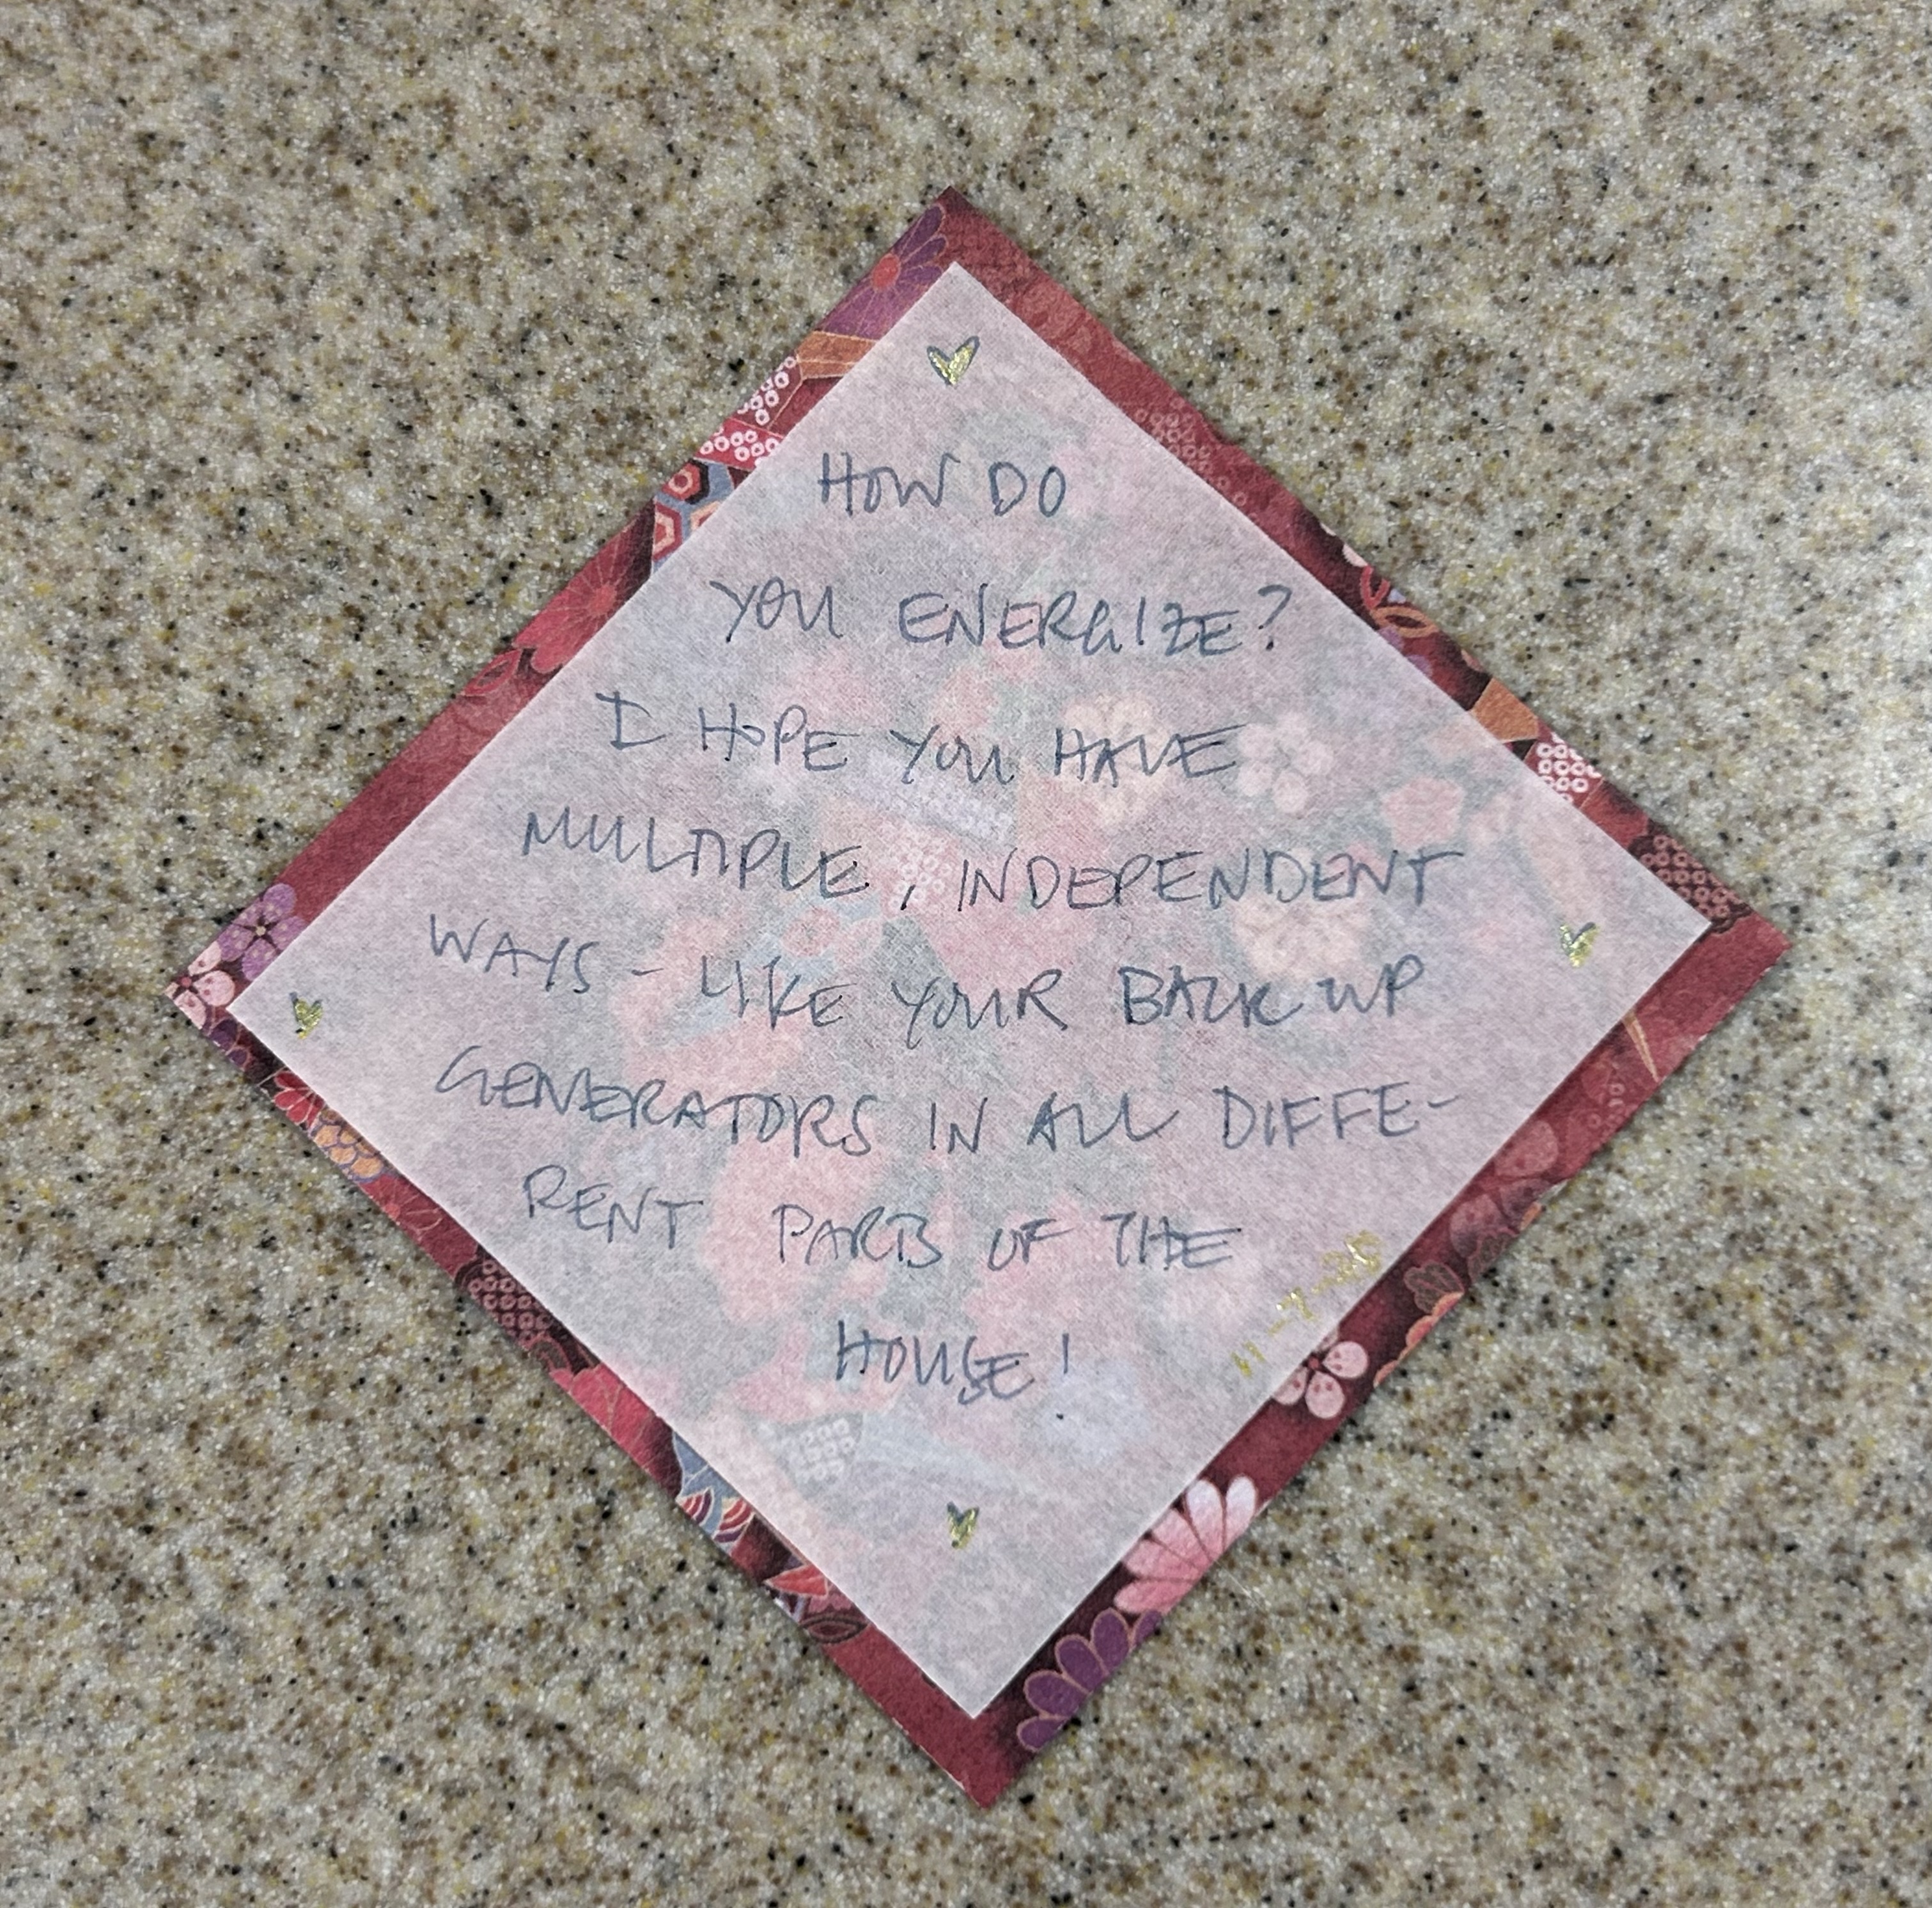 HOW DO
YOU ENERGIZE?
I HOPE YOU HAVE
MULTIPLE, INDEPENDENT
WAYS - LIKE YOUR BACK UP
GENERATORS IN ALL DIFFE-
RENT PARTS OF THE
HOUSE!